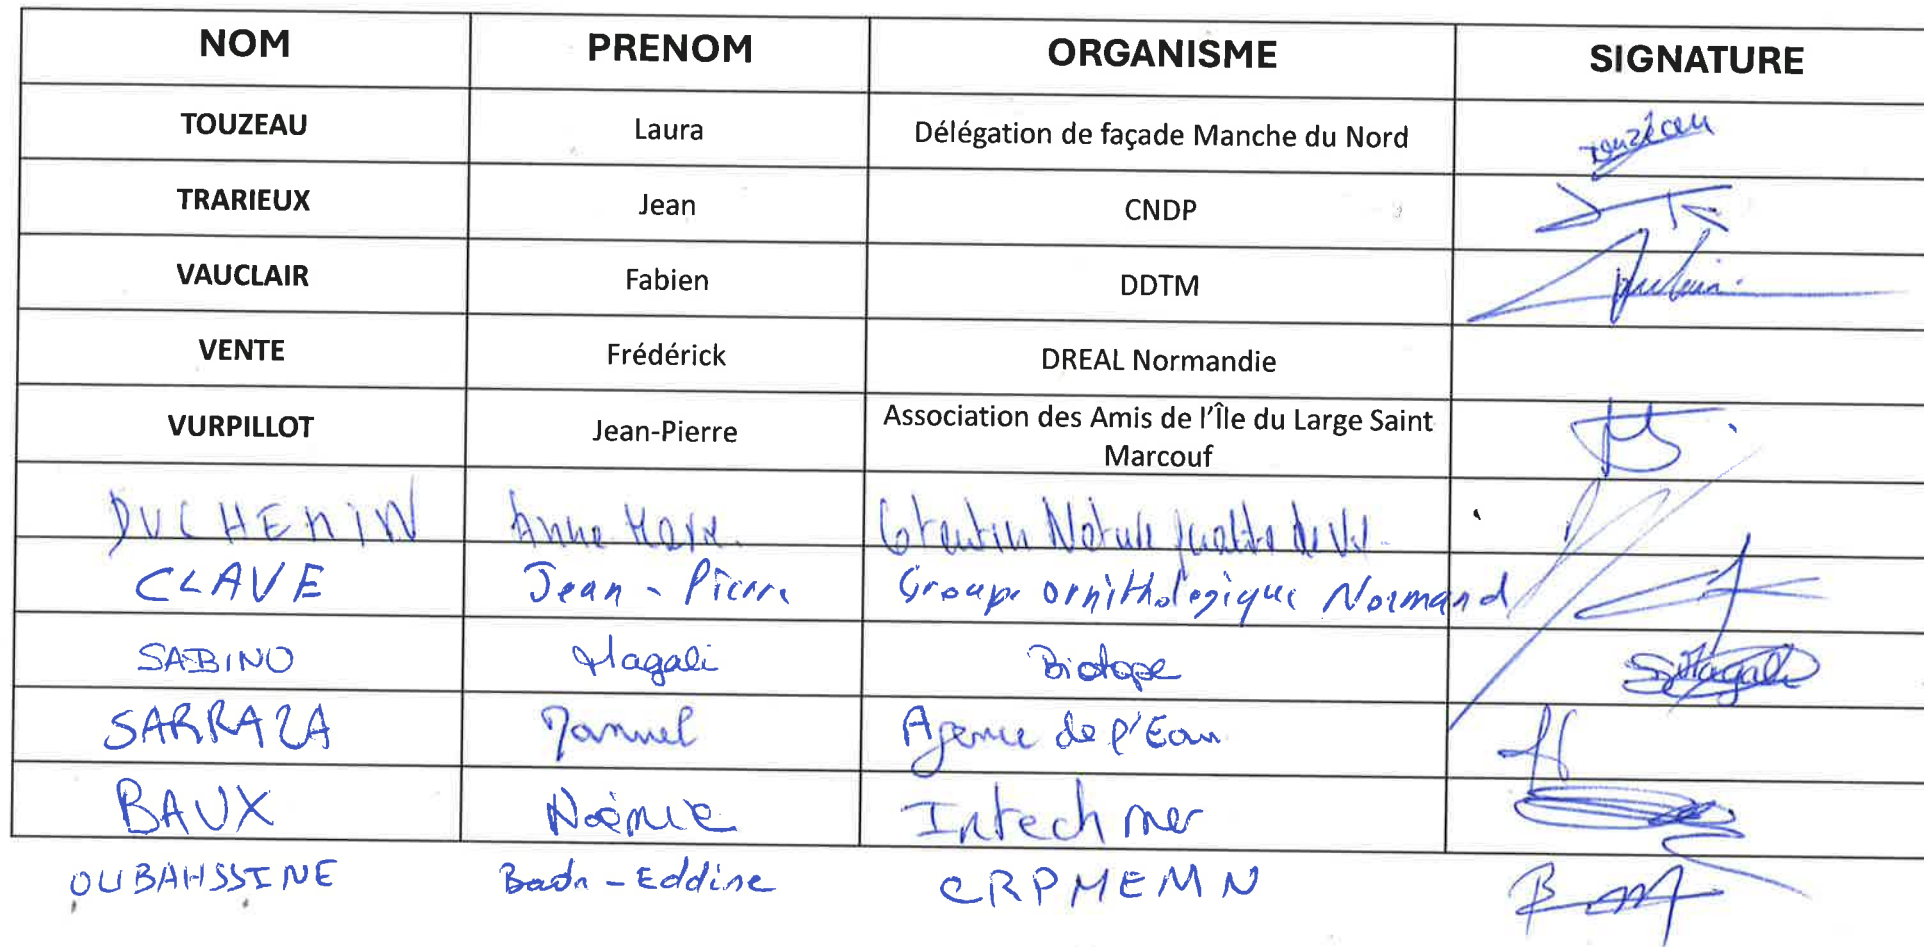 NOM PRENOM ORGANISME SIGNATURE
TOUZEAU Laura Délégation de façade Manche du Nord Touzeau
TRARIEUX Jean CNDP
VAUCLAIR Fabien DDTM
VENTE Frédérick DREAL Normandie
VURPILLOT Jean-Pierre Association des Amis de l'Île du Large Saint
Marcouf
DUCHEMIN Anne Marie Cotentin Nature qualité de Vie
CLAVE Jean - Pierre Groupe ornithologique Normand
SABINO Magali Biotope S Magali
SARRAZA Yannel Agence de l'Eau
BAUX Noémie Intechmer
OUBAHSSINE Badr - Eddine CRPMEMN